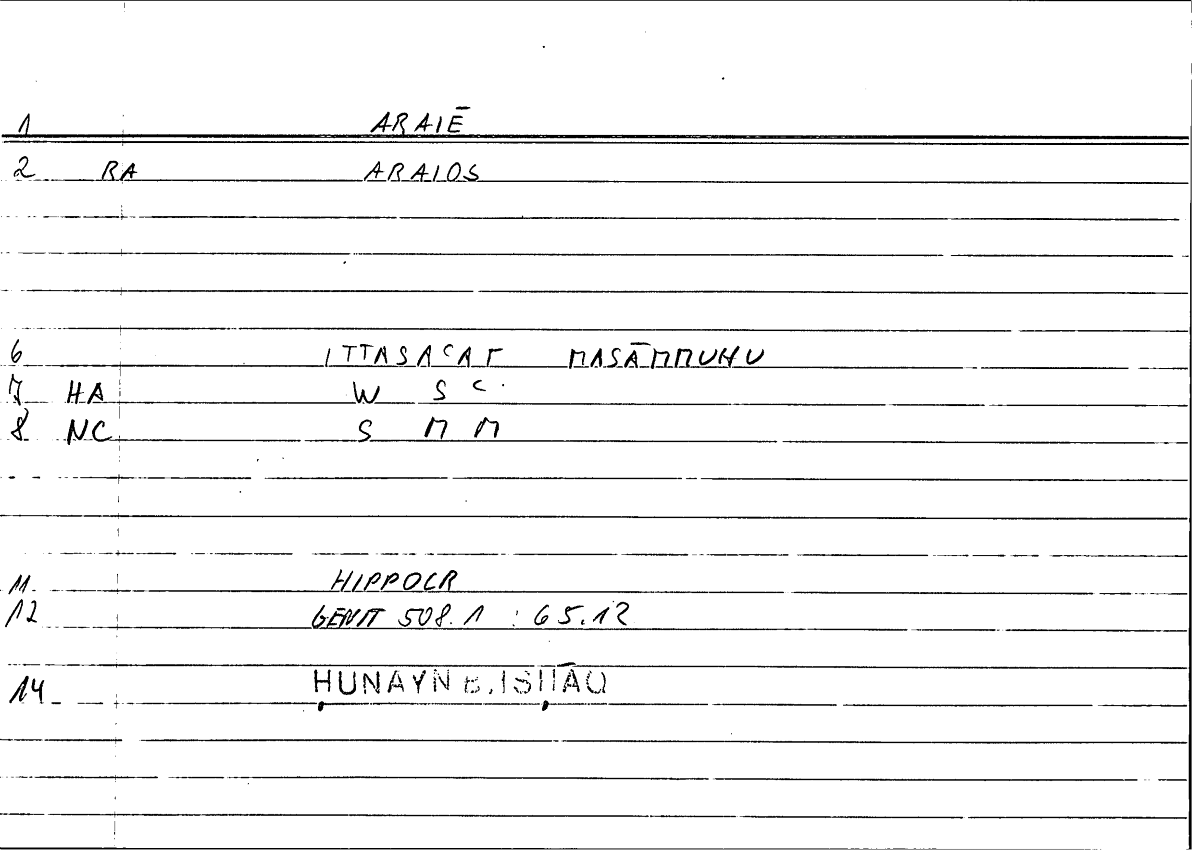 1 ARAIĒ
2 RA ARAIOS
6 ITTASAʿAT MASĀMMUHU
7 HA W S ʿ
8 NC S M M
11 HIPPOCR
12 GENIT 508.1 : 65.12
14 ḤUNAYN B. ISḤĀQ